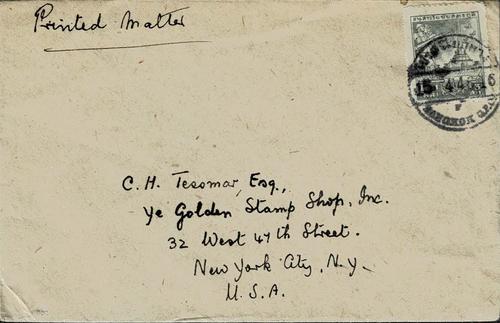 Printed Matter
15 4 46 16
BANGKOK G.P.O.
C. H. Tesomar, Esq.,
Ye Golden Stamp Shop, Inc.
32 West 47th Street.
New York City, N.Y.
U.S.A.